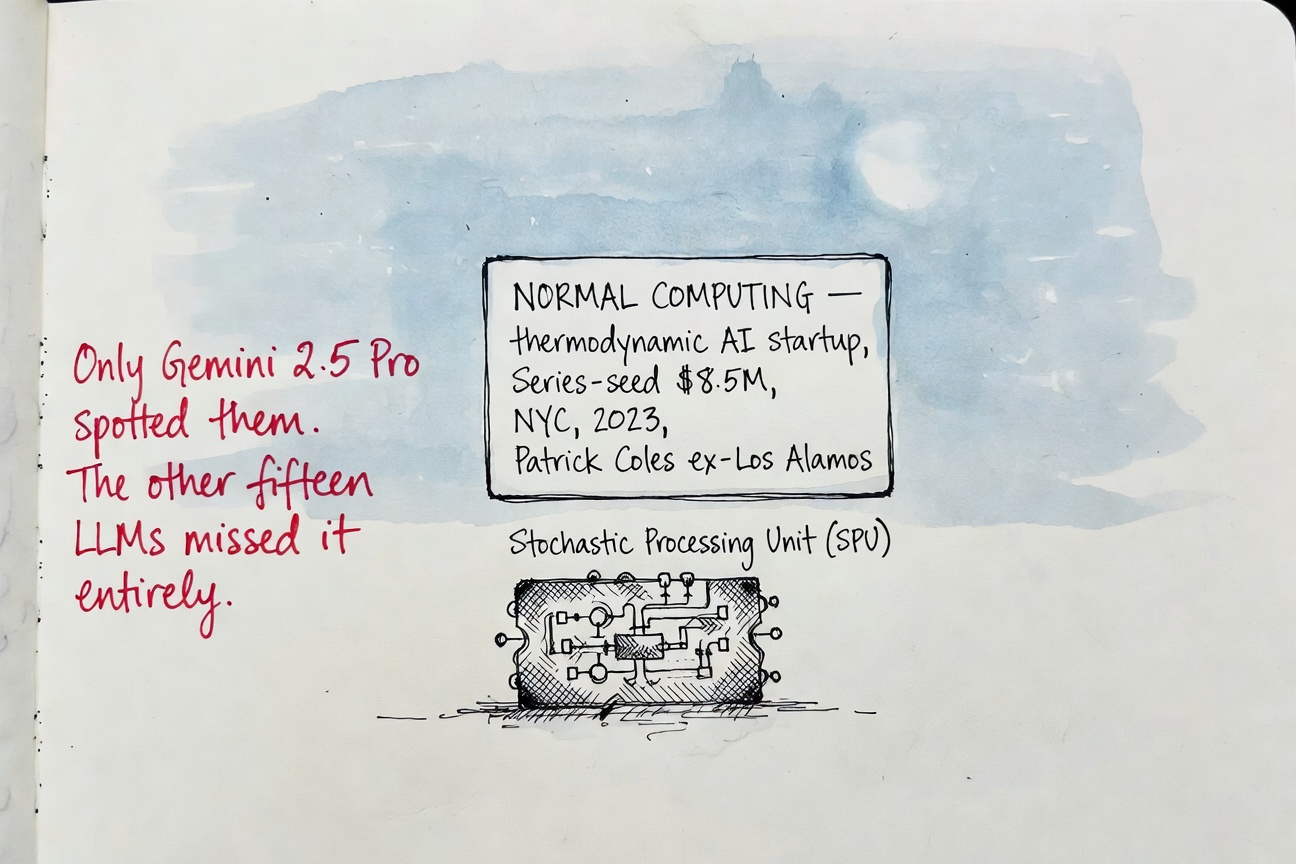 Only Gemini 2.5 Pro
spotted them.
The other fifteen
LLMs missed it
entirely.
NORMAL COMPUTING —
thermodynamic AI startup,
Series-seed $8.5M,
NYC, 2023,
Patrick Coles ex-Los Alamos
Stochastic Processing Unit (SPU)